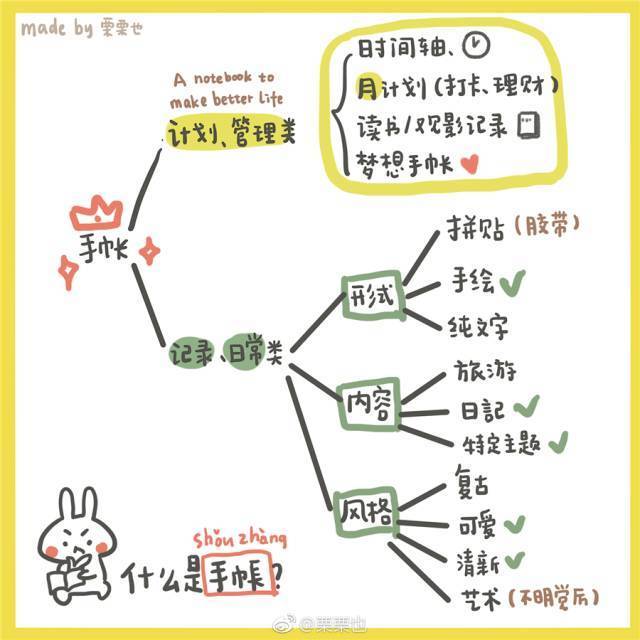 made by 栗栗也
A notebook to
make better life
计划、管理类
时间轴、
月计划(打卡、理财)
读书/观影记录
梦想手帐
手帐
记录、日常类
形式
拼贴(胶带)
手绘
纯文字
内容
旅游
日記
特定主题
风格
复古
可爱
清新
艺术(不明觉厉)
shǒu zhàng
什么是手帳?
@栗栗也